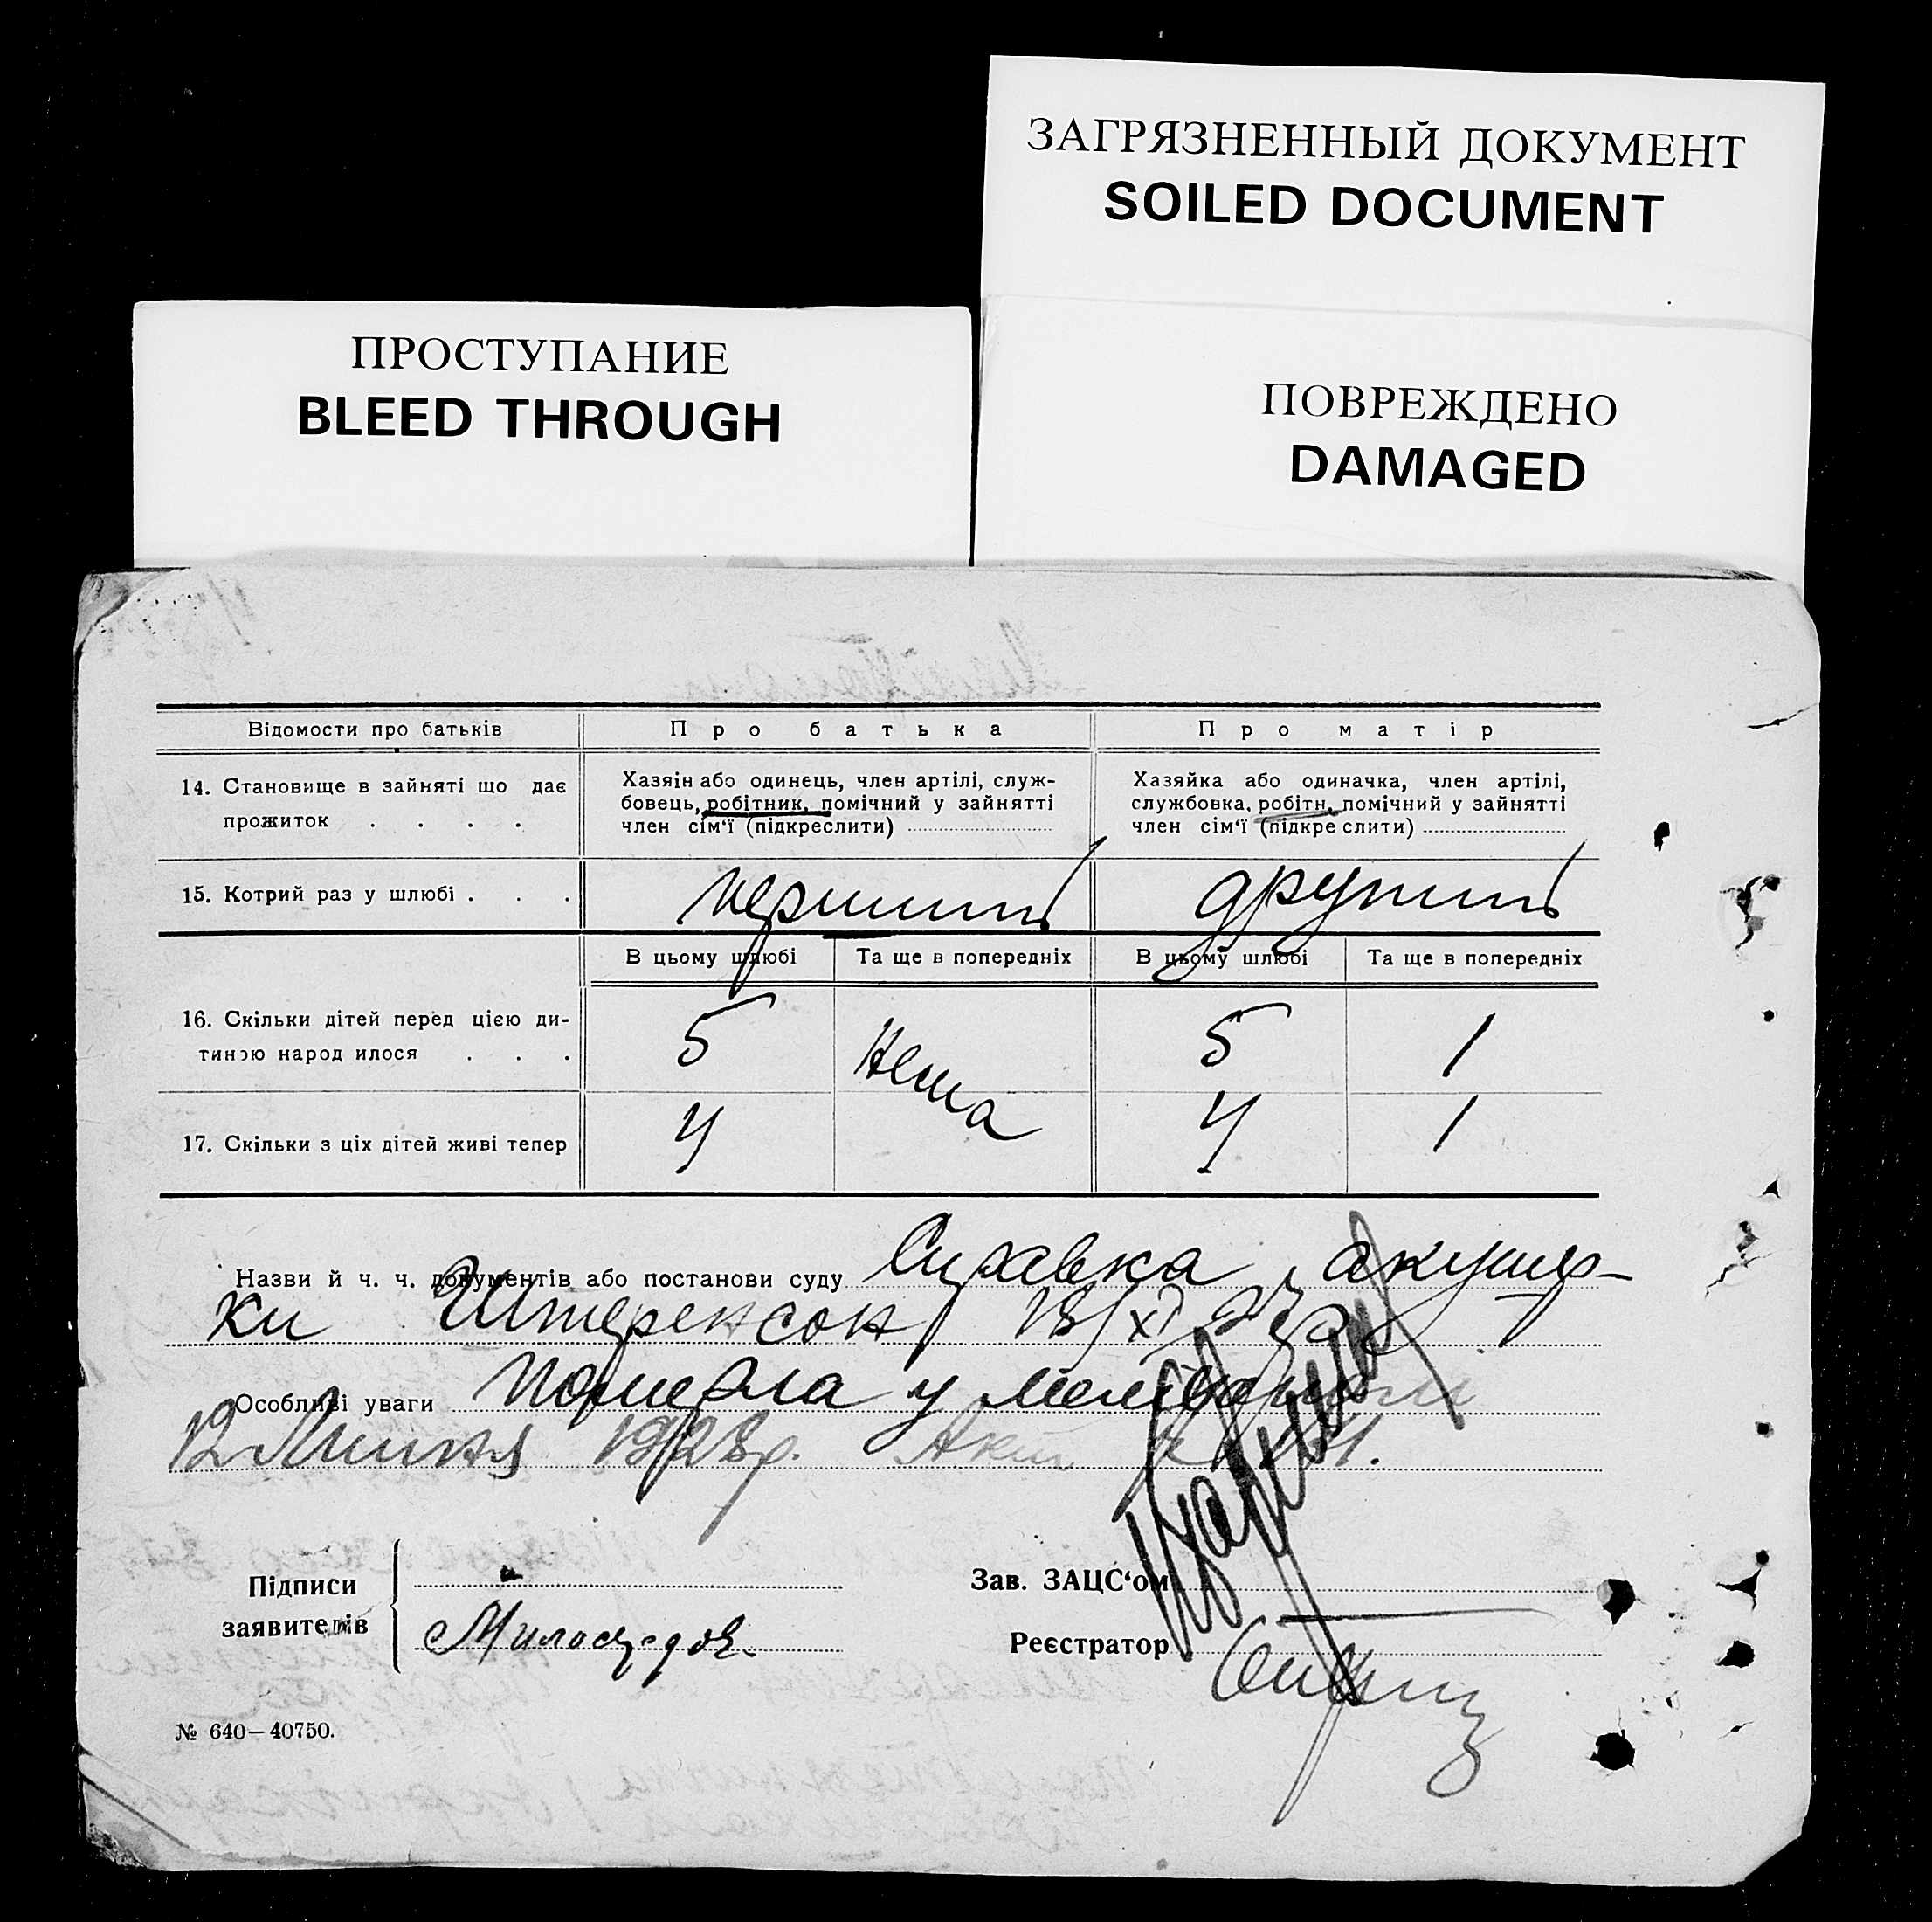 ЗАГРЯЗНЕННЫЙ ДОКУМЕНТ
SOILED DOCUMENT
ПРОСТУПАНИЕ
BLEED THROUGH
ПОВРЕЖДЕНО
DAMAGED
Відомости про батьків
Про батька
Про матір
14. Становище в зайняті що дає
прожиток . . . .
Хазяін або одинець, член артілі, служ-
бовець, робітник, помічний у зайнятті
член сім‘ї (підкреслити)
Хазяйка або одиначка, член артілі,
службовка, робітн., помічний у зайнятті
член сім‘ї (підкре слити)
15. Котрий раз у шлюбі . . .
перший
другий
В цьому шлюбі
Та ще в попередніх
В цьому шлюбі
Та ще в попередніх
16. Скільки дітей перед цією ди-
тиною народ илося . . .
5
Нема
5
1
17. Скільки з ціх дітей живі тепер
4
4
1
Назви й ч. ч. документів або постанови суду Справка акушер-
ки Штеренсон 18/XI 27 р
Особливі уваги Померла у
12 Липня 1928р. Акт
Підписи
заявителів
Милосердов.
Зав. ЗАЦС‘ом
Реєстратор
№ 640—40750.